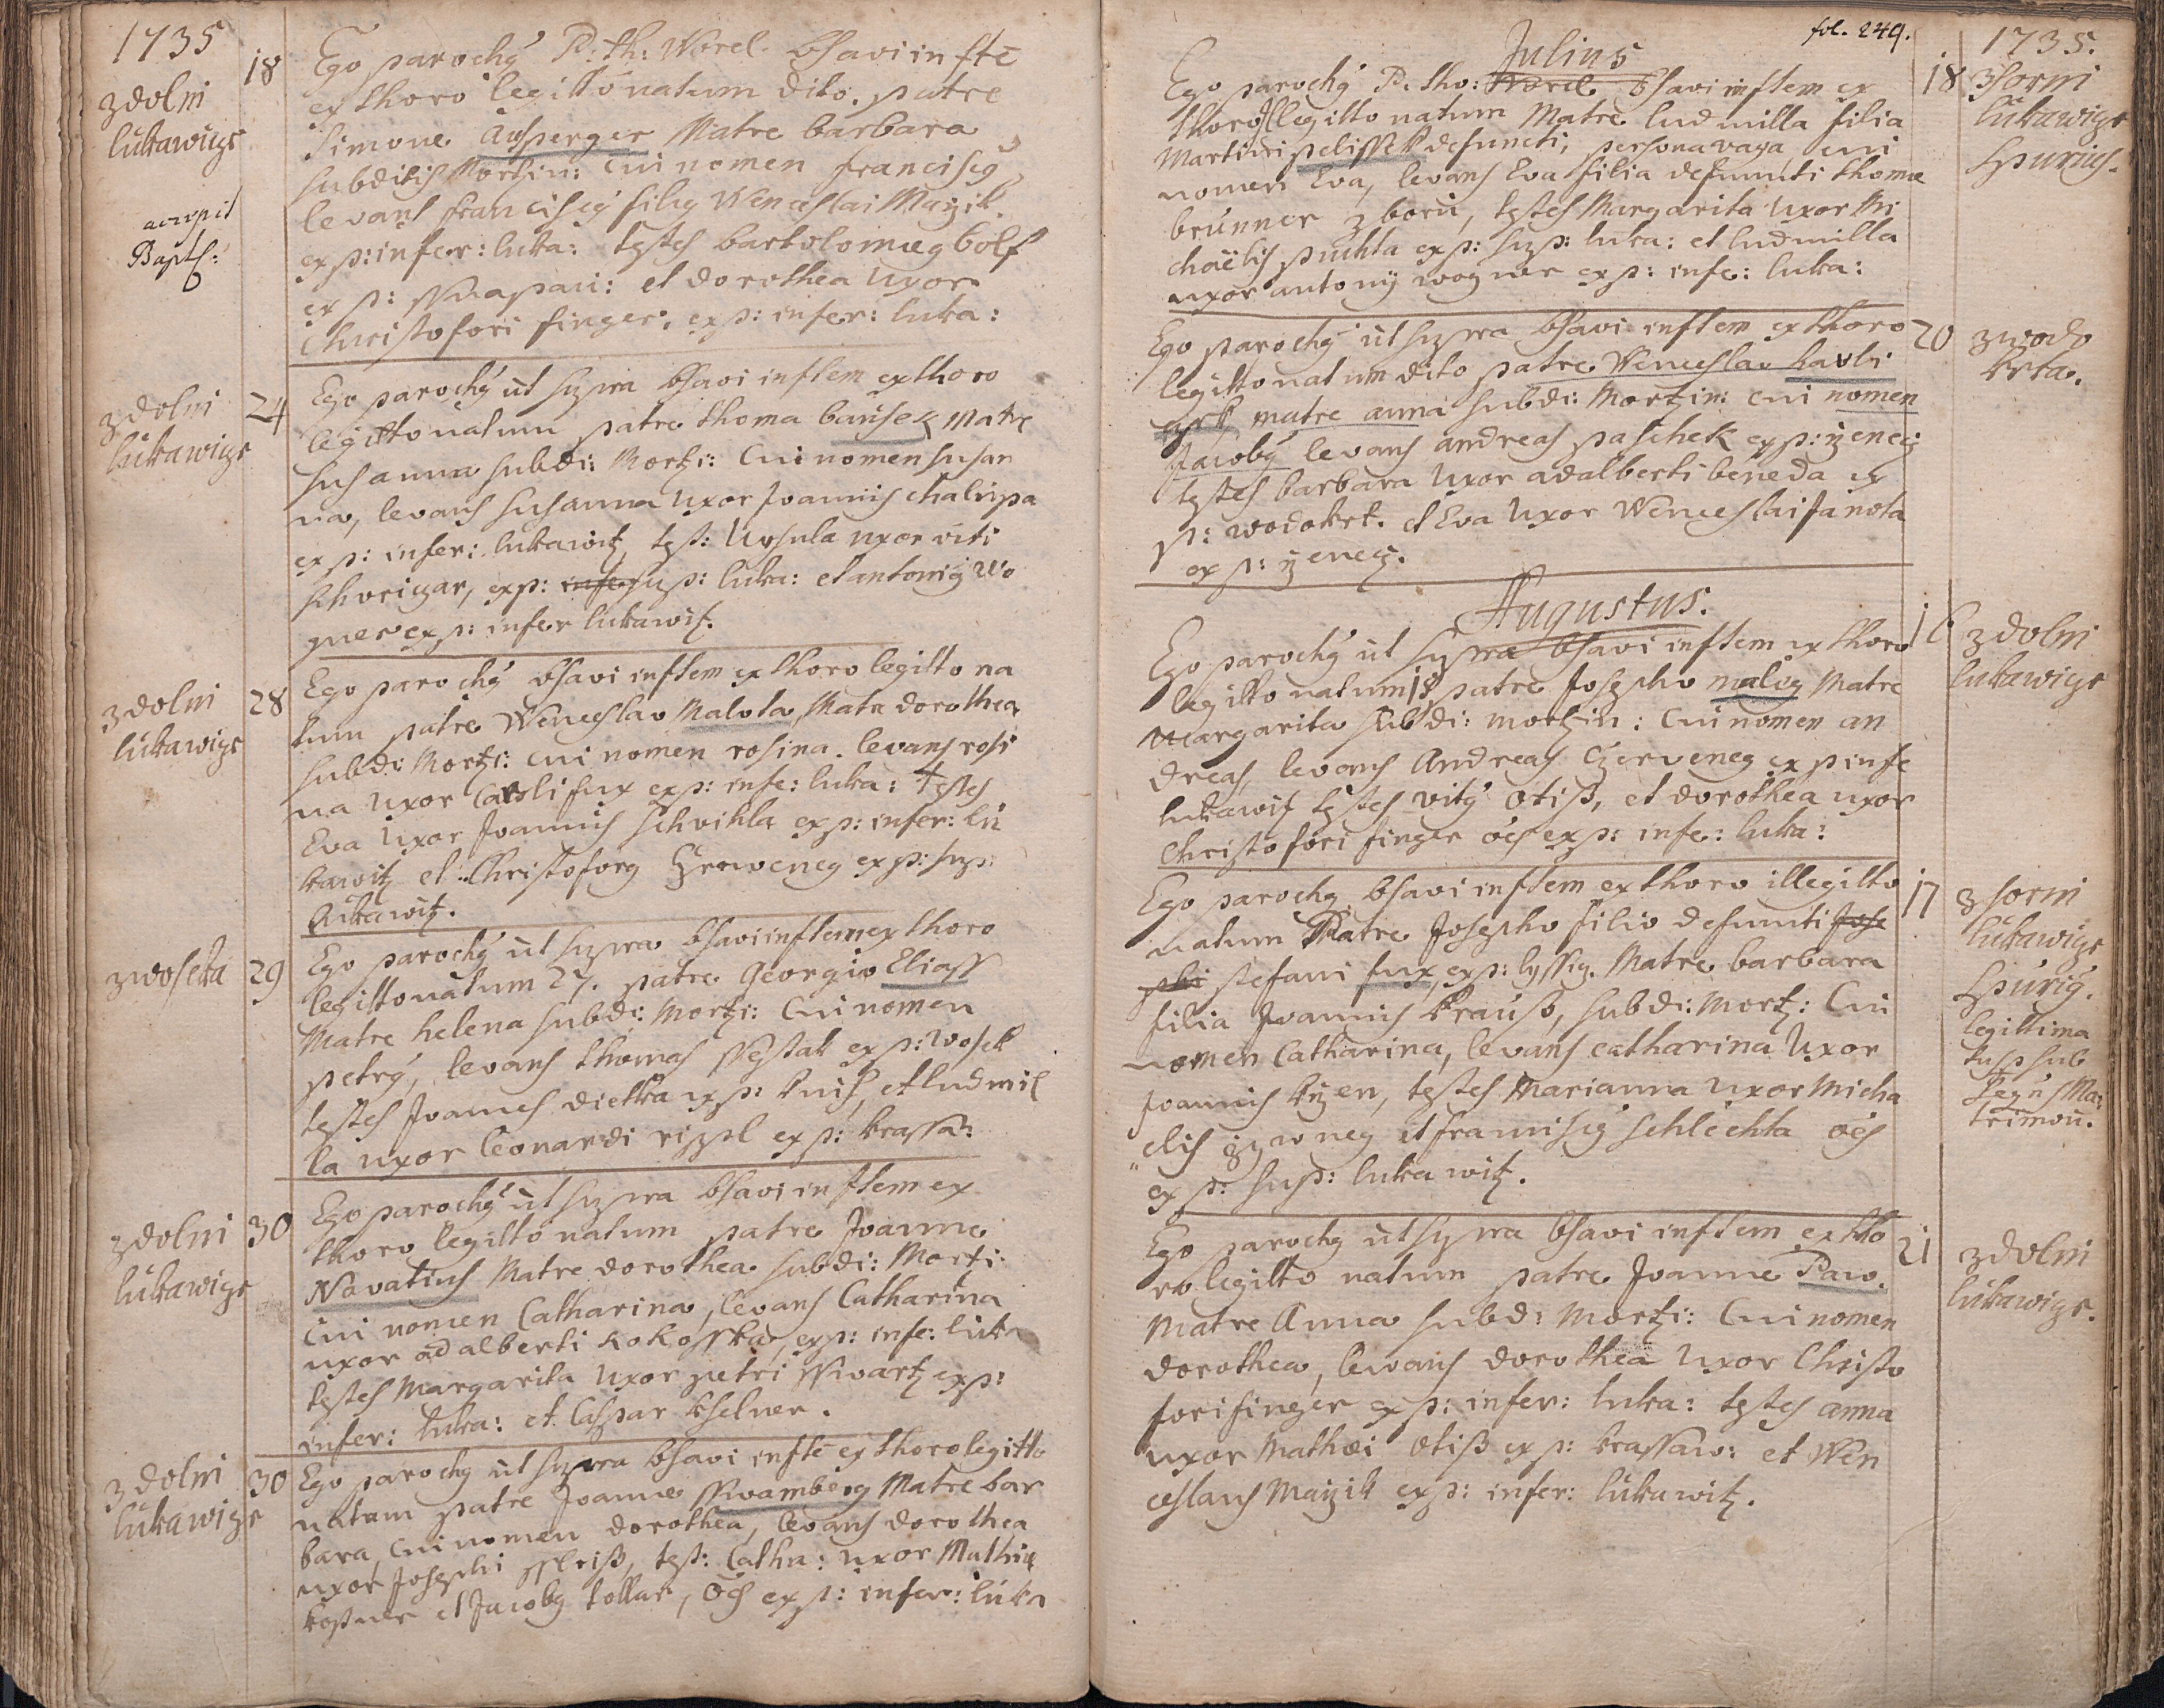 1735
18
zdolni
lukawicze
accepit
Bapts:
Ego parochq P: th: Worel. bsavi infte
ex thoro legitto natum dito. patre
Simone Ausperger Matre barbara
subditis Mortzin: Cui nomen franciscq
levans franciscq filiq Wenceslai Mayzik
ex p: infer: luka: testes bartolomaeq bolf
ex p: et dorothea Uxor
Christofori finger, ex p: infer: luka:
zdolni
lukawicze
24
Ego parochq ut supra bsavi inftem ex thoro
legitto natum patre thoma bausek Matre
susanna subdi: Mortzi: Cui nomen susan
na, levans susanna Uxor Joannis chalupa
ex p: infer: lukawitz, test: Ursula uxor viti
ex p: infer sup: luka: et antoniq Wo
gner ex p: infer lukawitz.
zdolni
lukawicze
28
Ego parochq bsavi inftem ex thoro legitto na
tum patre Wenceslao Malota, Matre dorothea
subdi: Mortzi: cui nomen rosina. levans rosi
na Uxor Caroli fux ex p: infe: luka: testes
Eva Uxor Joannis schvihla ex p: infer: lu
kawitz et Christoforq ex p: sup:
lukawitz.
zwoseka
29
Ego parochq ut supra bsavi inftem ex thoro
legitto natum 27. patre Georgio Eliass
Matre helena subdi: Mortzi: Cui nomen
petrq, levans thomas ssestak ex p: wosek
testes Joannes dietka ex p: knih, et ludmil
la uxor leonardi rippl ex p: krassa:
zdolni
lukawicze
30
Ego parochq ut supra bsavi inftem ex
thoro legitto natum patre Joanne
Novatius Matre dorothea subdi: Mortzi:
Cui nomen Catharina, levans Catharina
uxor adalberti kokosska, ex p: infe: luka
testes Margarita Uxor petri sswartz ex p:
infer: luka: et Caspar kselner.
zdolni
lukawicze
30
Ego parochq ut supra bsavi infte ex thoro legitto
natum patre Joanne sswamberg Matre bar
bara, cui nomen dorothea, levans dorothea
uxor Josephi test: Catha: uxor Mathiae
kostner et Jacobq tollar, oes ex p: infer: luka
fol. 249.
1735.
Julius
18
zhorni
lukawicze
Spurius.
Ego parochq P. tho: Worel bsavi inftem ex
thoro Illegitto natum Matre ludmilla filia
Martini pelissek defuncti, persona vaga, cui
nomen Eva, levans Eva filia defuncti thomae
brunner zboru, testes Margarita Uxor Mi
chaelis puchta ex p: sup: luka: et ludmilla
uxor antonij wogner ex p: infe: luka:
20
zwodo
krta.
Ego parochq ut supra bsavi inftem ex thoro
legitto natum dito patre Wenceslao havli
czek matre anna subdi: Mortzin: cui nomen
Jacobq levans andreas paschek ex p:
testes barbara Uxor adalberti beneda ex
p: wodokrt. et Eva Uxor Wenceslai Janota
ex p:
Augustus.
16
zdolni
lukawicze
Ego parochq ut supra bsavi inftem ex thoro
legitto natum 15 patre Josepho maleg Matre
Margarita subdi: mortzin: Cui nomen an
dreas, levans Andreas Czerveneg ex p infe
lukawitz testes vitq otiss, et dorothea uxor
Christofori finger oes ex p: infe: luka:
17
zhorni
lukawicze
Spuriq.
legittima
tus sub
sequs Ma:
trimon.
Ego parochq bsavi inftem ex thoro illegitto
natum Patre Josepho filio defuncti Jose
phi stefani fux, ex p: lyssig. Matre barbara
filia Joannis krauss, subdi: Mortz: Cui
nomen Catharina, levans catharina Uxor
Joannis kizen, testes Marianna Uxor Micha
elis et franciscq schlechta oes
ex p: sup: lukawitz.
21
zdolni
lukawicze.
Ego parochq ut supra bsavi inftem ex tho
ro legitto natum patre Joanne Paw.
Matre Anna subd: Mortzi: Cui nomen
dorothea, levans dorothea Uxor Christo
fori finger ex p: infer: luka: testes anna
uxor Mathaei otiss ex p: krassaw: et Wen
ceslaus Mayzik ex p: infer: lukawitz.